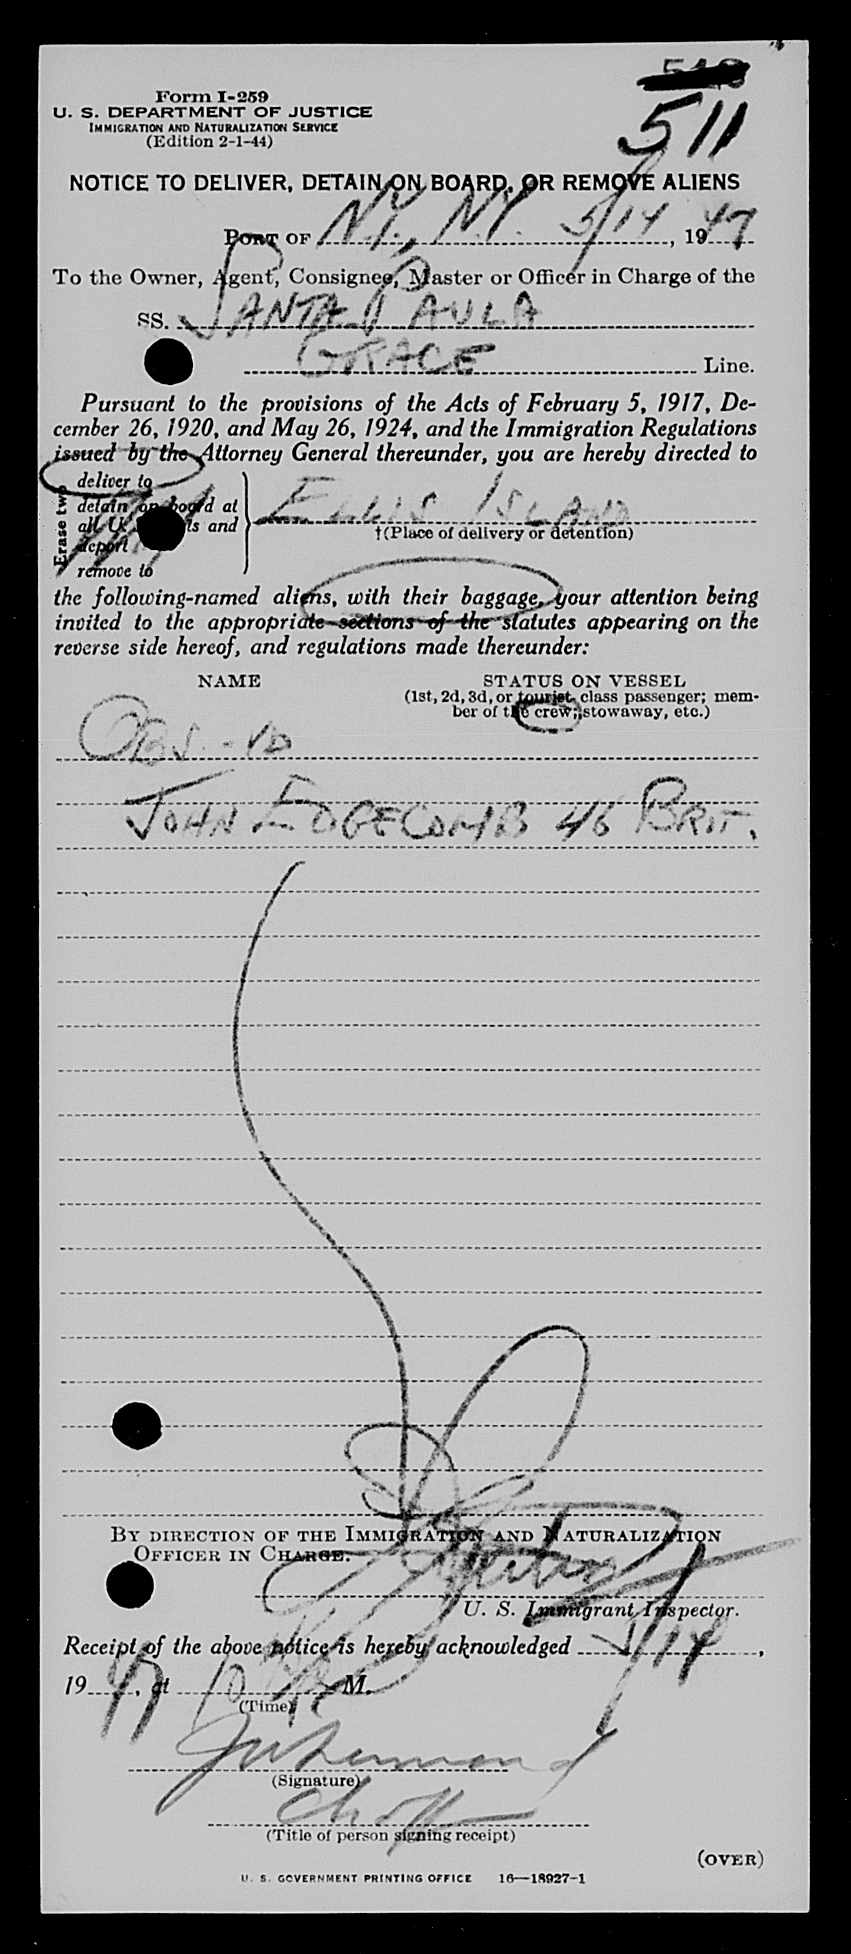 511
Form I-259
U. S. DEPARTMENT OF JUSTICE
IMMIGRATION AND NATURALIZATION SERVICE
(Edition 2-1-44)
NOTICE TO DELIVER, DETAIN ON BOARD, OR REMOVE ALIENS
PORT OF N.Y., N.Y. 5/14, 1947
To the Owner, Agent, Consignee, Master or Officer in Charge of the
SS. SANTA PAULA
GRACE Line.
Pursuant to the provisions of the Acts of February 5, 1917, De-
cember 26, 1920, and May 26, 1924, and the Immigration Regulations
issued by the Attorney General thereunder, you are hereby directed to
Erase two
deliver to
detain on board at
all U. S. and
deport
remove to
ELLIS ISLAND
†(Place of delivery or detention)
the following-named aliens, with their baggage, your attention being
invited to the appropriate sections of the statutes appearing on the
reverse side hereof, and regulations made thereunder:
NAME STATUS ON VESSEL
(1st, 2d, 3d, or tourist class passenger; mem-
ber of the crew; stowaway, etc.)
JOHN EDGECOMB 46 BRIT.
BY DIRECTION OF THE IMMIGRATION AND NATURALIZATION
OFFICER IN CHARGE.
U. S. Immigrant Inspector.
Receipt of the above notice is hereby acknowledged 5/14,
1947, at 10 M.
(Time)
(Signature)
(Title of person signing receipt)
(OVER)
U. S. GOVERNMENT PRINTING OFFICE 16—18927-1